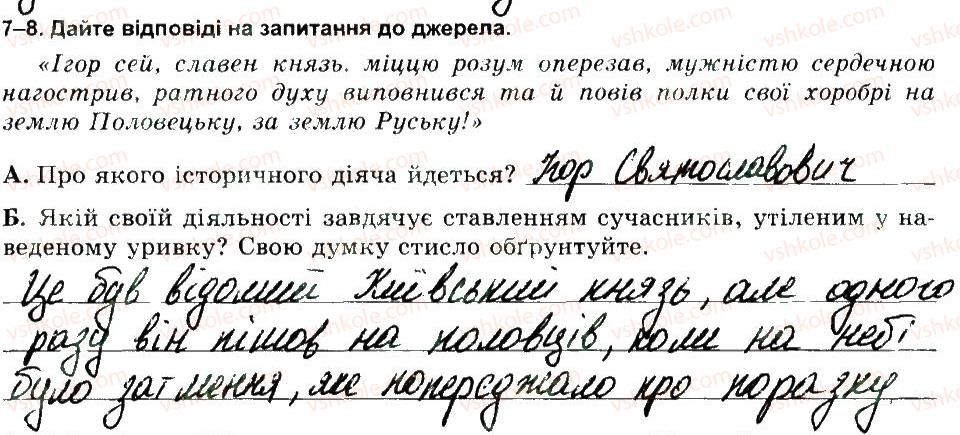 7–8. Дайте відповіді на запитання до джерела.
«Ігор сей, славен князь. міццю розум оперезав, мужністю сердечною
нагострив, ратного духу виповнився та й повів полки свої хоробрі на
землю Половецьку, за землю Руську!»
А. Про якого історичного діяча йдеться? Ігор Святославович
Б. Якій своїй діяльності завдячує ставленням сучасників, утіленим у на-
веденому уривку? Свою думку стисло обґрунтуйте.
Це був відомий Київський князь, але одного
разу він пішов на половців, коли на небі
було затмення, яке попереджало про поразку.